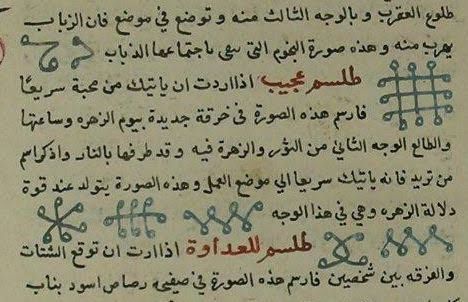 طلوع العقرب و بالوجه الثالث منه و توضع في موضع فان الزباب
يهرب منه و هذه صورة النجوم التي ينفى باجتماعها الذباب
طلسم عجيب اذا اردت ان ياتيك من محبة سريعًا
فارسم هذه الصورة في خرقة جديدة بيوم الزهره وساعتها
والطالع الوجه الثاني من الثور والزهرة فيه و قد طرفها بالنار واذكر اسم
من تريد فانه ياتيك سريعا الي موضع العمل وهذه الصورة يتولد عند قوة
دلالة الزهره وهي في هذا الوجه
طلسم للعداوة اذا ارت ان توقع الشتات
والفرقه بين شخصين فارسم هذه الصورة في صفيحى رصاص اسود بناب